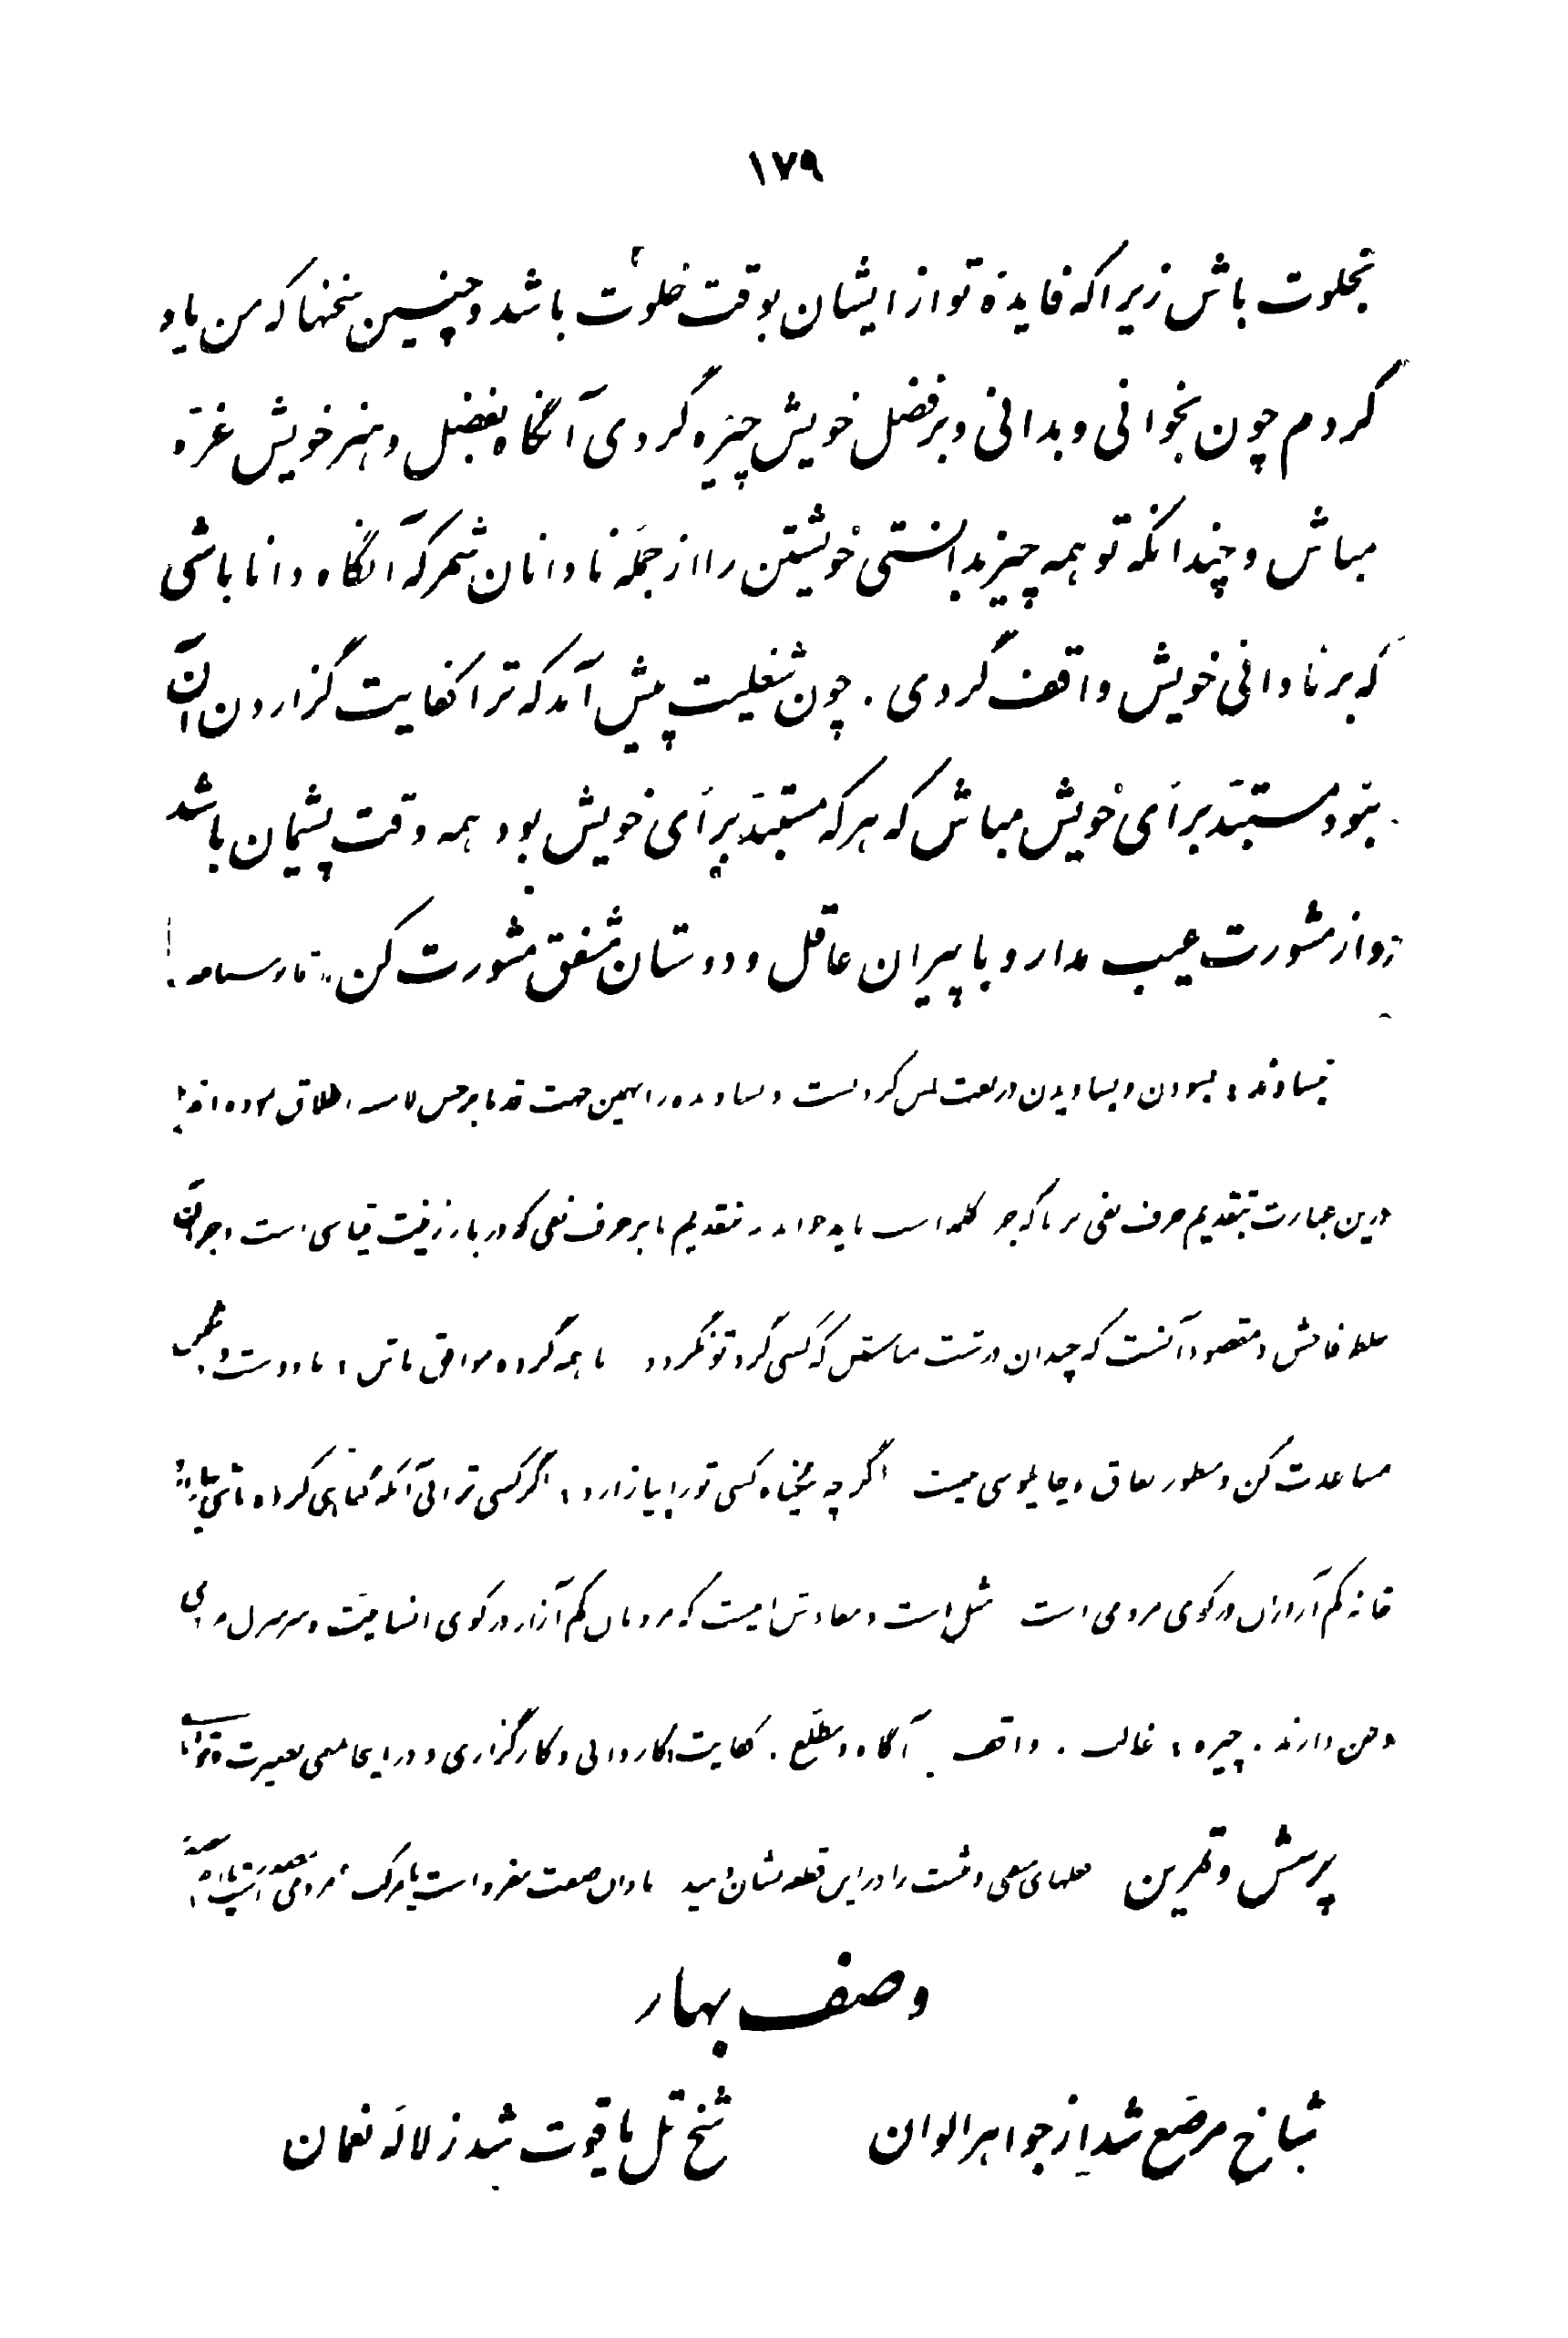 ۱۷۹
بخلوت باش زیرا که فایدهٔ تو از ایشان بوقت خلوت باشد و چنین سخنها که من یاد
کردم چون بخوانی و بدانی و بر فضل خویش چیره گردی آنگاه بفضل و هنر خویش غرّه
مباش و چندانکه تو همه چیز بدانستی خویشتن را از جملهٔ نادانان شمر که آنگاه دانا باشی
که بر نادانی خویش واقف گردی . چون شغلیت پیش آمد که ترا کفایت گزاردن آن
نبود مستبدّ برأی خویش مباش که هر که مستبدّ برأی خویش بود همه وقت پشیمان باشد
و از مشورت عیب مدار و با پیران عاقل و دوستان مشفق مشورت کن
بساوند ، بسودن و بساویدن در لغت لمس کردنست و بهمین جهت قدما بر حس لامسه اطلاق
درین عبارت بتقدیم حرف نفی بر با که جزء کلمه است باید خواند بتقدیم با بر حرف نفی که در باء زینت قیاسی است و جز آن
غلط فاحش و مقصود آنست که چندان درشت مباش که کسی گرد تو نگردد با همه گروه موافق باش ، با دوست و دشمن
مساعدت کن و منظور نفاق و چاپلوسی نیست اگر چه بیگناه کسی تو را بیازارد ، اگر کسی ترا بی آنکه گناهی کرده باشی
خانهٔ کم آزاران در کوی مردمی است مثل است و مفادش اینست که مردمان کم آزار در کوی انسانیت
دارند . چیره ، غالب . واقف آگاه و مطّلع . کفایت ، کاردانی و کارگزاری و در اینجا بمعنی
پرسش و تمرین فعلهای نهی و مثبت را در این قطعه نشان دهید نادان صفت مفرد است یا مرکب
وصف بهار
شاخ مرصّع شد از جواهر الوان شخ تل یاقوت شد ز لالهٔ نعمان